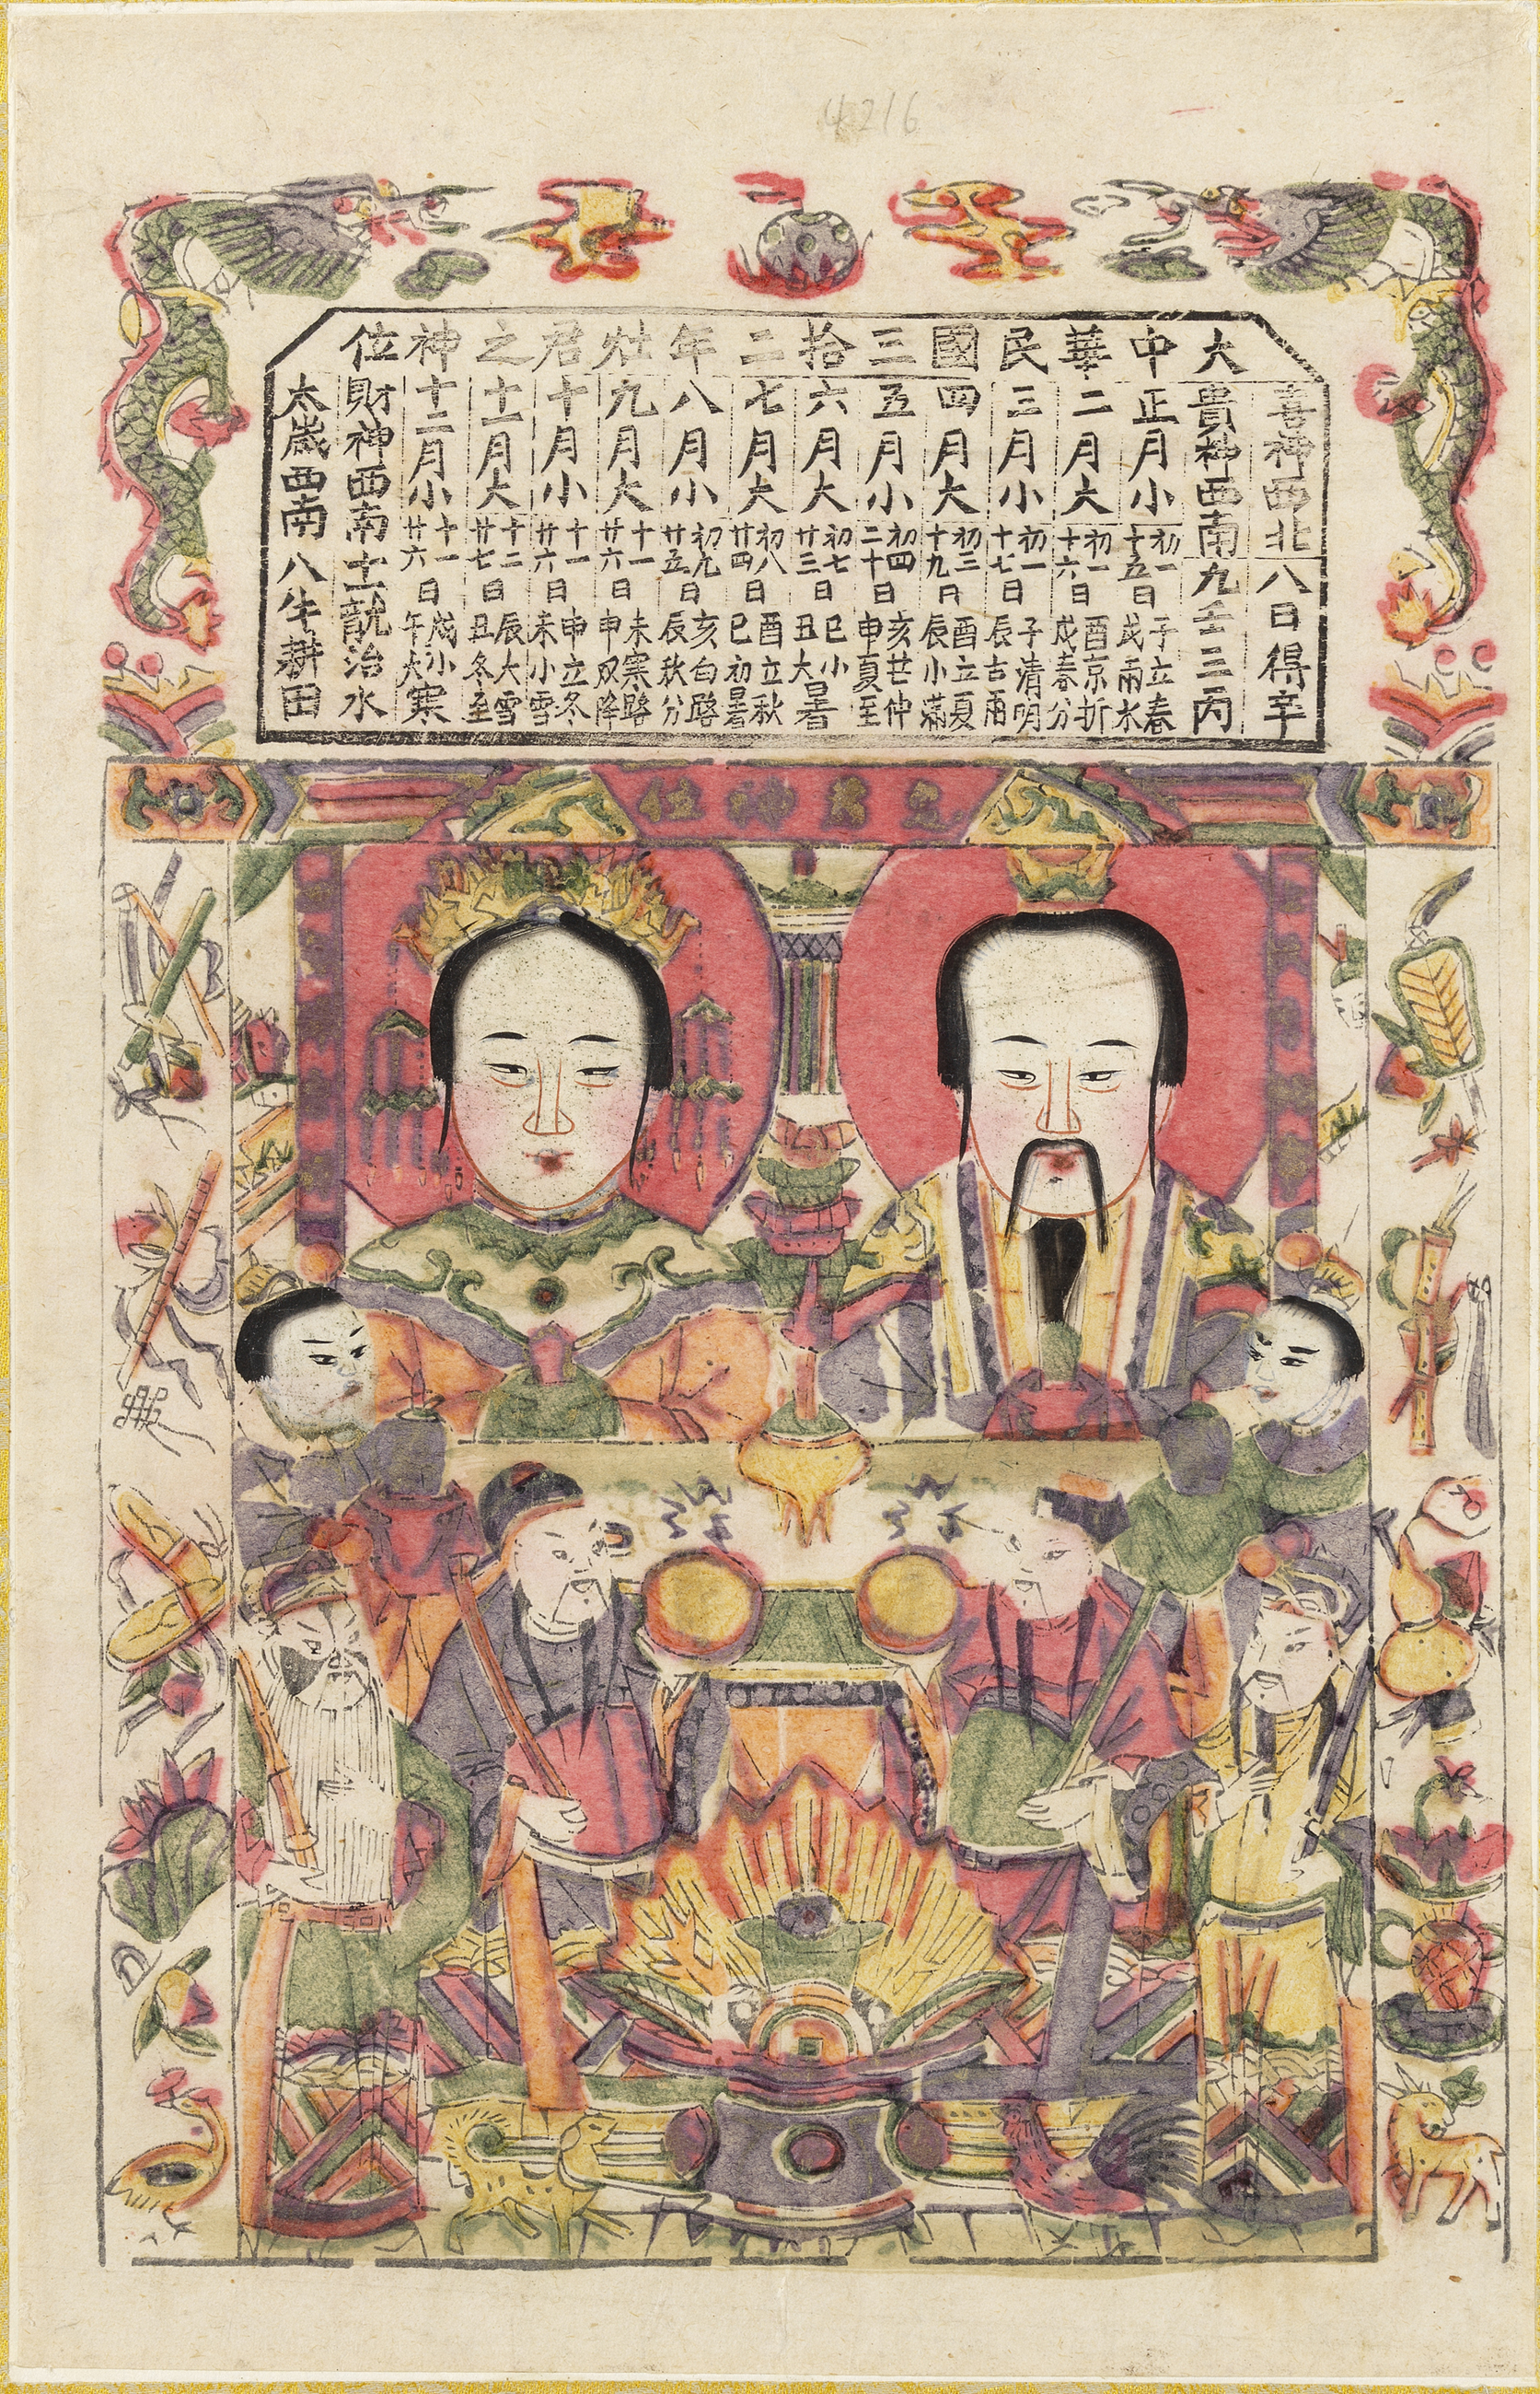 4216
大中華民國三拾二年灶君之神位
喜神西北 八日得辛
貴神西南 九壬三丙
正月小 初一 十五日 子立春 戌雨水
二月大 初一 十六日 酉京折 戌春分
三月小 初一 十七日 子清明 辰古雨
四月大 初三 十九日 酉立夏 辰小滿
五月小 初四 二十日 亥芒仲 申夏至
六月大 初七 廿三日 巳小 丑大暑
七月大 初八 廿四日 酉立秋 巳初暑
八月小 初九 廿五日 亥白路 辰秋分
九月大 十一 廿六日 未寒路 申双降
十月小 十一 廿六日 申立冬 未小雪
十一月大 十二 廿七日 辰大雪 丑冬至
十二月小 十一 廿六日 戌小 午大寒
財神西南 十一龍治水
太歲西南 八牛耕田
君神位